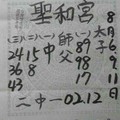 聖和宮
8月6日
(三)(二)(八)(一)師(一)太
24 15 中 父 89 子
36 8 97
43 98 9
17
11
二中一 02.12